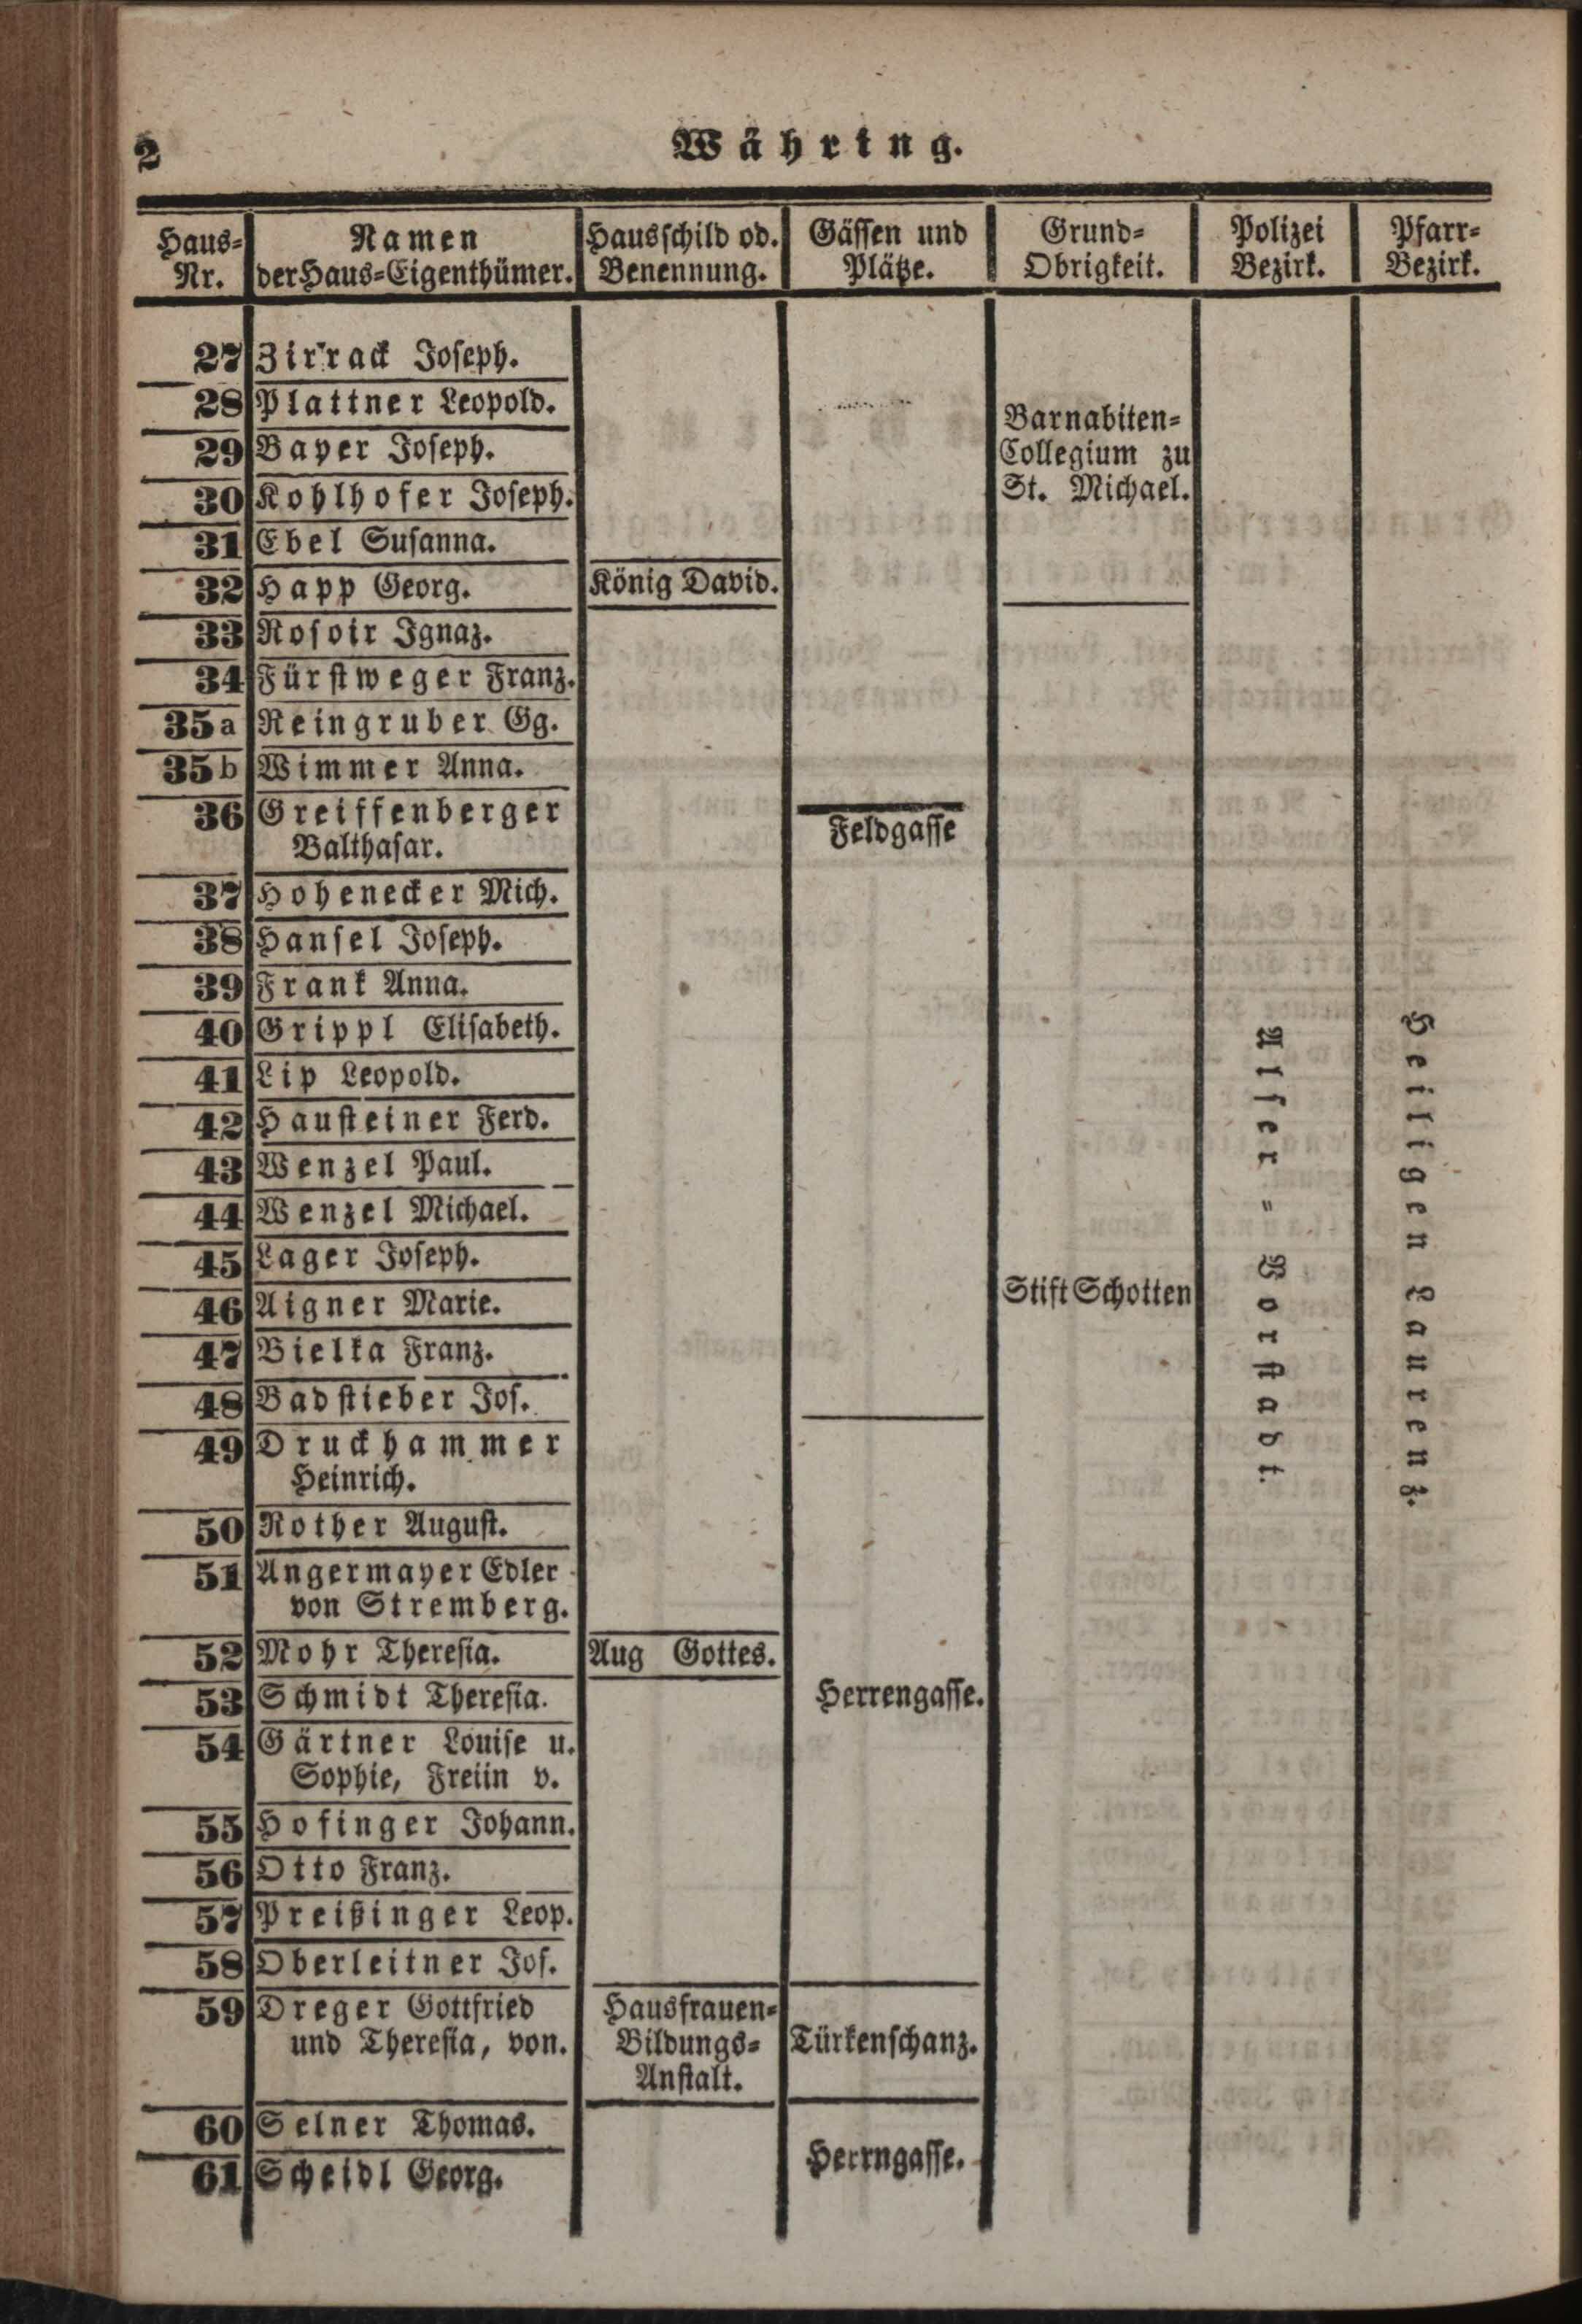 2
Währing.
Haus-Nr. Namen der Haus-Eigenthümer. Hausschild od. Benennung. Gässen und Plätze. Grund-Obrigkeit. Polizei Bezirk. Pfarr-Bezirk.
27 Zirrack Joseph.
28 Plattner Leopold.
Barnabiten-
29 Bayer Joseph.
Collegium zu
30 Kohlhofer Joseph.
St. Michael.
31 Ebel Susanna.
32 Happ Georg. König David.
33 Rosoir Ignaz.
34 Fürstweger Franz.
35a Reingruber Gg.
35b Wimmer Anna.
36 Greiffenberger
Balthasar.
Feldgasse
37 Hohenecker Mich.
38 Hansel Joseph.
39 Frank Anna.
40 Grippl Elisabeth.
41 Lip Leopold.
42 Hausteiner Ferd.
43 Wenzel Paul.
44 Wenzel Michael.
45 Lager Joseph.
46 Aigner Marie.
Stift Schotten
47 Bielka Franz.
48 Badstieber Jos.
49 Druckhammer
Heinrich.
50 Rother August.
51 Angermayer Edler
von Stremberg.
52 Mohr Theresia. Aug Gottes.
53 Schmidt Theresia.
Herrengasse.
54 Gärtner Louise u.
Sophie, Freiin v.
55 Hofinger Johann.
56 Otto Franz.
57 Preißinger Leop.
58 Oberleitner Jos.
59 Dreger Gottfried
und Theresia, von.
Hausfrauen-
Bildungs-
Anstalt.
Türkenschanz.
60 Selner Thomas.
61 Scheidl Georg.
Herrngasse.
Alser-Vorstadt.
Heiligen Laurenz.